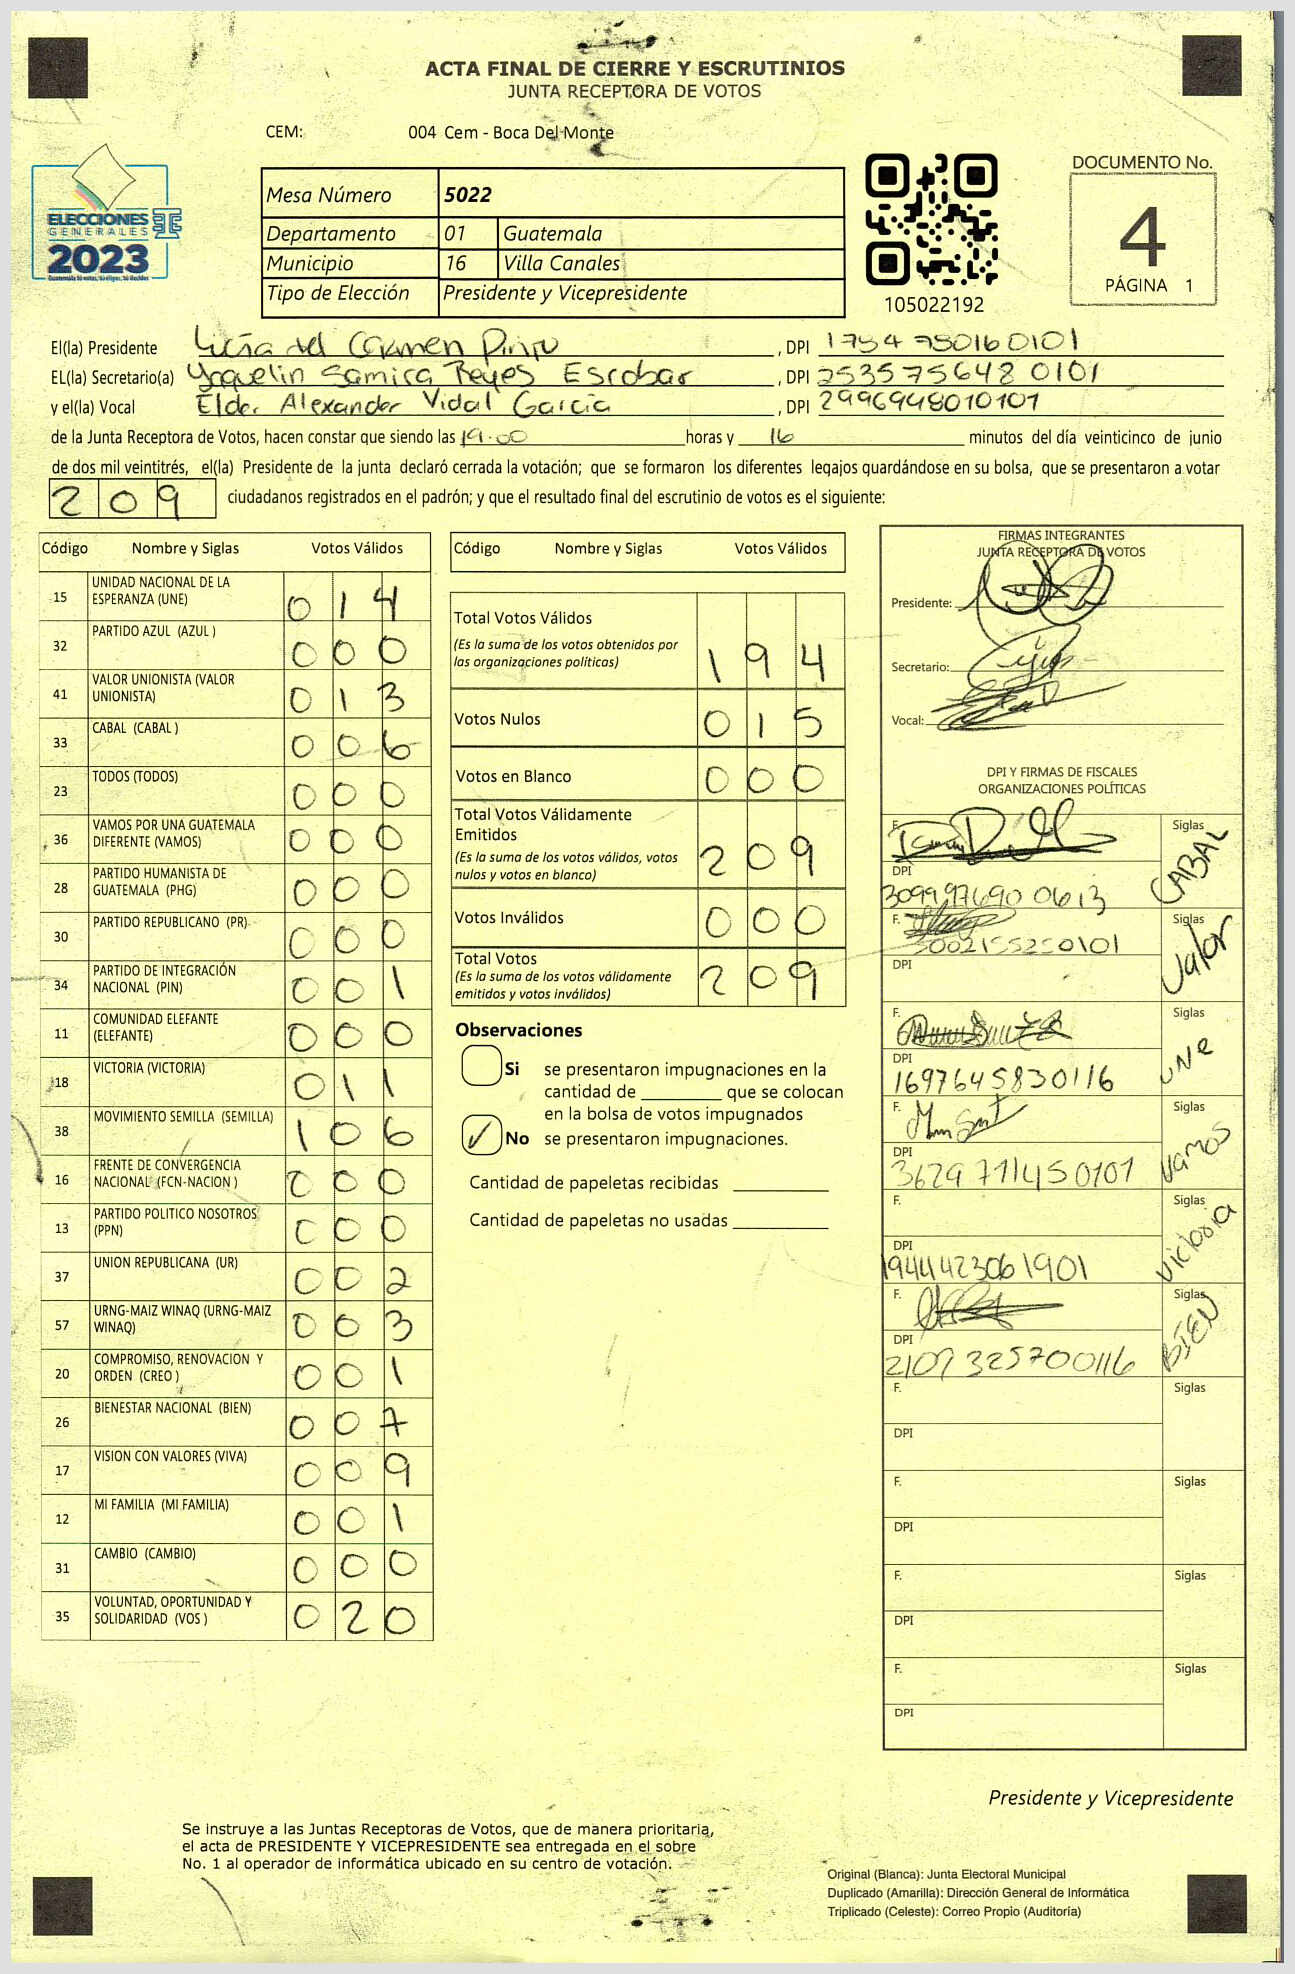 ACTA FINAL DE CIERRE Y ESCRUTINIOS
JUNTA RECEPTORA DE VOTOS
CEM: 004 Cem - Boca Del Monte
ELECCIONES
GENERALES
2023
Mesa Número 5022
Departamento 01 Guatemala
Municipio 16 Villa Canales
Tipo de Elección Presidente y Vicepresidente
105022192
DOCUMENTO No.
4
PÁGINA 1
El(la) Presidente Lucía del Carmen , DPI 1754 780160101
EL(la) Secretario(a) Yoquelin Samira Reyes Escobar , DPI 2535756480101
y el(la) Vocal Elder Alexander Vidal Garcia , DPI 2996948010101
de la Junta Receptora de Votos, hacen constar que siendo las 19:00 horas y 16 minutos del día veinticinco de junio
de dos mil veintitrés, el(la) Presidente de la junta declaró cerrada la votación; que se formaron los diferentes legajos guardándose en su bolsa, que se presentaron a votar
209 ciudadanos registrados en el padrón; y que el resultado final del escrutinio de votos es el siguiente:
Código Nombre y Siglas Votos Válidos
15 UNIDAD NACIONAL DE LA ESPERANZA (UNE) 0 1 4
32 PARTIDO AZUL (AZUL ) 0 0 0
41 VALOR UNIONISTA (VALOR UNIONISTA) 0 1 3
33 CABAL (CABAL ) 0 0 6
23 TODOS (TODOS) 0 0 0
36 VAMOS POR UNA GUATEMALA DIFERENTE (VAMOS) 0 0 0
28 PARTIDO HUMANISTA DE GUATEMALA (PHG) 0 0 0
30 PARTIDO REPUBLICANO (PR) 0 0 0
34 PARTIDO DE INTEGRACIÓN NACIONAL (PIN) 0 0 1
11 COMUNIDAD ELEFANTE (ELEFANTE) 0 0 0
18 VICTORIA (VICTORIA) 0 1 1
38 MOVIMIENTO SEMILLA (SEMILLA) 1 0 6
16 FRENTE DE CONVERGENCIA NACIONAL (FCN-NACION ) 0 0 0
13 PARTIDO POLITICO NOSOTROS (PPN) 0 0 0
37 UNION REPUBLICANA (UR) 0 0 2
57 URNG-MAIZ WINAQ (URNG-MAIZ WINAQ) 0 0 3
20 COMPROMISO, RENOVACION Y ORDEN (CREO ) 0 0 1
26 BIENESTAR NACIONAL (BIEN) 0 0 7
17 VISION CON VALORES (VIVA) 0 0 9
12 MI FAMILIA (MI FAMILIA) 0 0 1
31 CAMBIO (CAMBIO) 0 0 0
35 VOLUNTAD, OPORTUNIDAD Y SOLIDARIDAD (VOS ) 0 2 0
Código Nombre y Siglas Votos Válidos
Total Votos Válidos 1 9 4
(Es la suma de los votos obtenidos por
las organizaciones políticas)
Votos Nulos 0 1 5
Votos en Blanco 0 0 0
Total Votos Válidamente
Emitidos 2 0 9
(Es la suma de los votos válidos, votos
nulos y votos en blanco)
Votos Inválidos 0 0 0
Total Votos 2 0 9
(Es la suma de los votos válidamente
emitidos y votos inválidos)
Observaciones
Si se presentaron impugnaciones en la
cantidad de ________ que se colocan
en la bolsa de votos impugnados
✓ No se presentaron impugnaciones.
Cantidad de papeletas recibidas
Cantidad de papeletas no usadas
FIRMAS INTEGRANTES
JUNTA RECEPTORA DE VOTOS
Presidente:
Secretario:
Vocal:
DPI Y FIRMAS DE FISCALES
ORGANIZACIONES POLÍTICAS
F. Siglas CABAL
DPI 3099976900613
F. Siglas Valor
3002155250101
DPI
F. Siglas UNE
DPI 1697645830116
F. Siglas Vamos
DPI 3629711450101
F. Siglas Victoria
DPI 1944423061901
F. Siglas BIEN
DPI 2107325700116
F. Siglas
DPI
F. Siglas
DPI
F. Siglas
DPI
F. Siglas
DPI
Presidente y Vicepresidente
Se instruye a las Juntas Receptoras de Votos, que de manera prioritaria,
el acta de PRESIDENTE Y VICEPRESIDENTE sea entregada en el sobre
No. 1 al operador de informática ubicado en su centro de votación.
Original (Blanca): Junta Electoral Municipal
Duplicado (Amarilla): Dirección General de Informática
Triplicado (Celeste): Correo Propio (Auditoría)